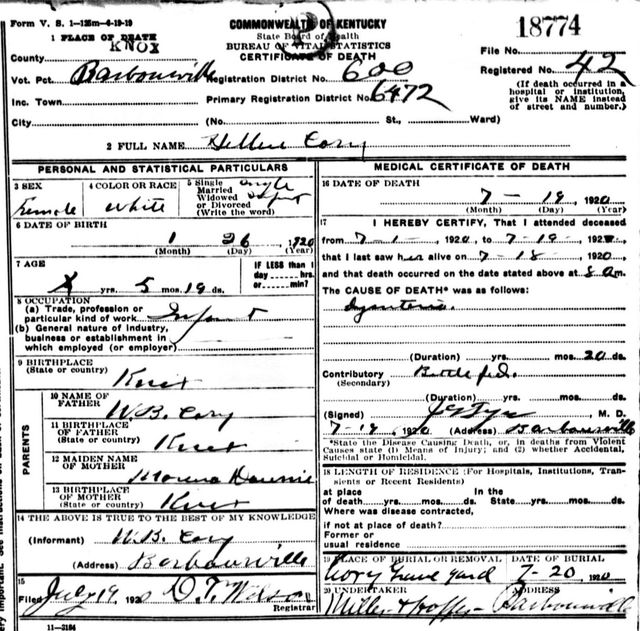 Form V. S. 1—125m—4-19-19
COMMONWEALTH OF KENTUCKY
State Board of Health
BUREAU OF VITAL STATISTICS
CERTIFICATE OF DEATH
18774
1 PLACE OF DEATH
County KNOX
File No.
Vot. Pct. Barbourville Registration District No. 600
Registered No. 42
Inc. Town Primary Registration District No. 6472
(If death occurred in a hospital or institution, give its NAME instead of street and number.)
City (No. St., Ward)
2 FULL NAME Hellen Cory
PERSONAL AND STATISTICAL PARTICULARS
3 SEX Female
4 COLOR OR RACE White
5 Single Married Widowed or Divorced (Write the word) Single Infant
6 DATE OF BIRTH
1 26 1920
(Month) (Day) (Year)
7 AGE
yrs. 5 mos. 19 ds.
IF LESS than 1 day hrs. or min.
8 OCCUPATION
(a) Trade, profession or particular kind of work Infant
(b) General nature of industry, business or establishment in which employed (or employer)
9 BIRTHPLACE
(State or country) Knox
PARENTS
10 NAME OF FATHER W.B. Cory
11 BIRTHPLACE OF FATHER
(State or country) Knox
12 MAIDEN NAME OF MOTHER
13 BIRTHPLACE OF MOTHER
(State or country) Knox
14 THE ABOVE IS TRUE TO THE BEST OF MY KNOWLEDGE
(Informant) W.B. Cory
(Address) Barbourville
15
July 19 1920 D.T. Wilson
Registrar
11—3184
MEDICAL CERTIFICATE OF DEATH
16 DATE OF DEATH
7 - 19, 1920
(Month) (Day) (Year)
17 I HEREBY CERTIFY, That I attended deceased
from 7-1-, 1920, to 7-19-, 192
that I last saw her alive on 7-18-, 1920
and that death occurred on the date stated above at 8 a.m.
The CAUSE OF DEATH* was as follows:
(Duration) yrs. mos. 20 ds.
Contributory Bottle fed.
(Secondary)
(Duration) yrs. mos. ds.
(Signed) M. D.
7-19, 1920 (Address) Barbourville
*State the Disease Causing Death, or, in deaths from Violent Causes state (1) Means of Injury; and (2) whether Accidental, Suicidal or Homicidal.
18 LENGTH OF RESIDENCE (For Hospitals, Institutions, Transients or Recent Residents)
at place of death yrs. mos. ds. In the State yrs. mos. ds.
Where was disease contracted, if not at place of death?
Former or usual residence
19 PLACE OF BURIAL OR REMOVAL DATE OF BURIAL
Cory Grave Yard 7-20, 1920
20 UNDERTAKER ADDRESS
Miller Barbourville